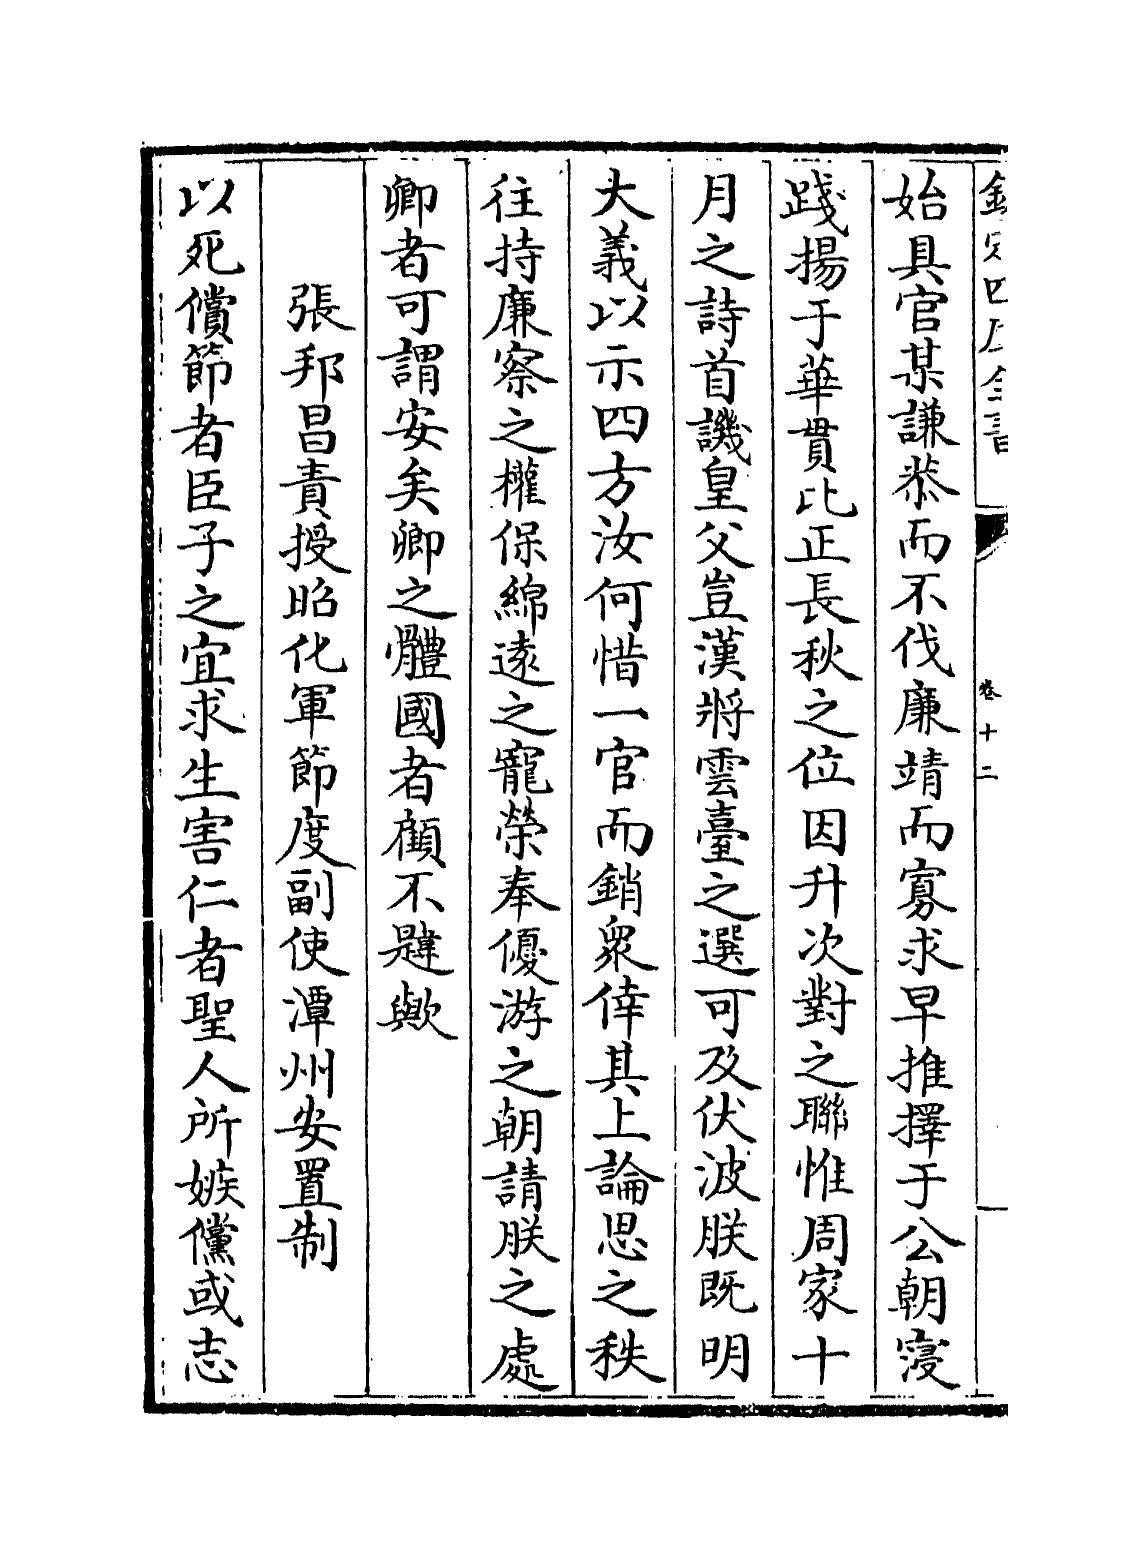 欽定四庫全書
卷十二
始具官某謙恭而不伐廉靖而寡求早推擇于公朝寖
踐揚于華貫比正長秋之位因升次對之聯惟周家十
月之詩首譏皇父豈漢將雲臺之選可及伏波朕既明
大義以示四方汝何惜一官而銷衆倖其上論思之秩
往持廉察之權保綿逺之寵榮奉優游之朝請朕之處
卿者可謂安矣卿之體國者顧不韙歟
張邦昌責授昭化軍節度副使潭州安置制
以死償節者臣子之宜求生害仁者聖人所嫉儻或志